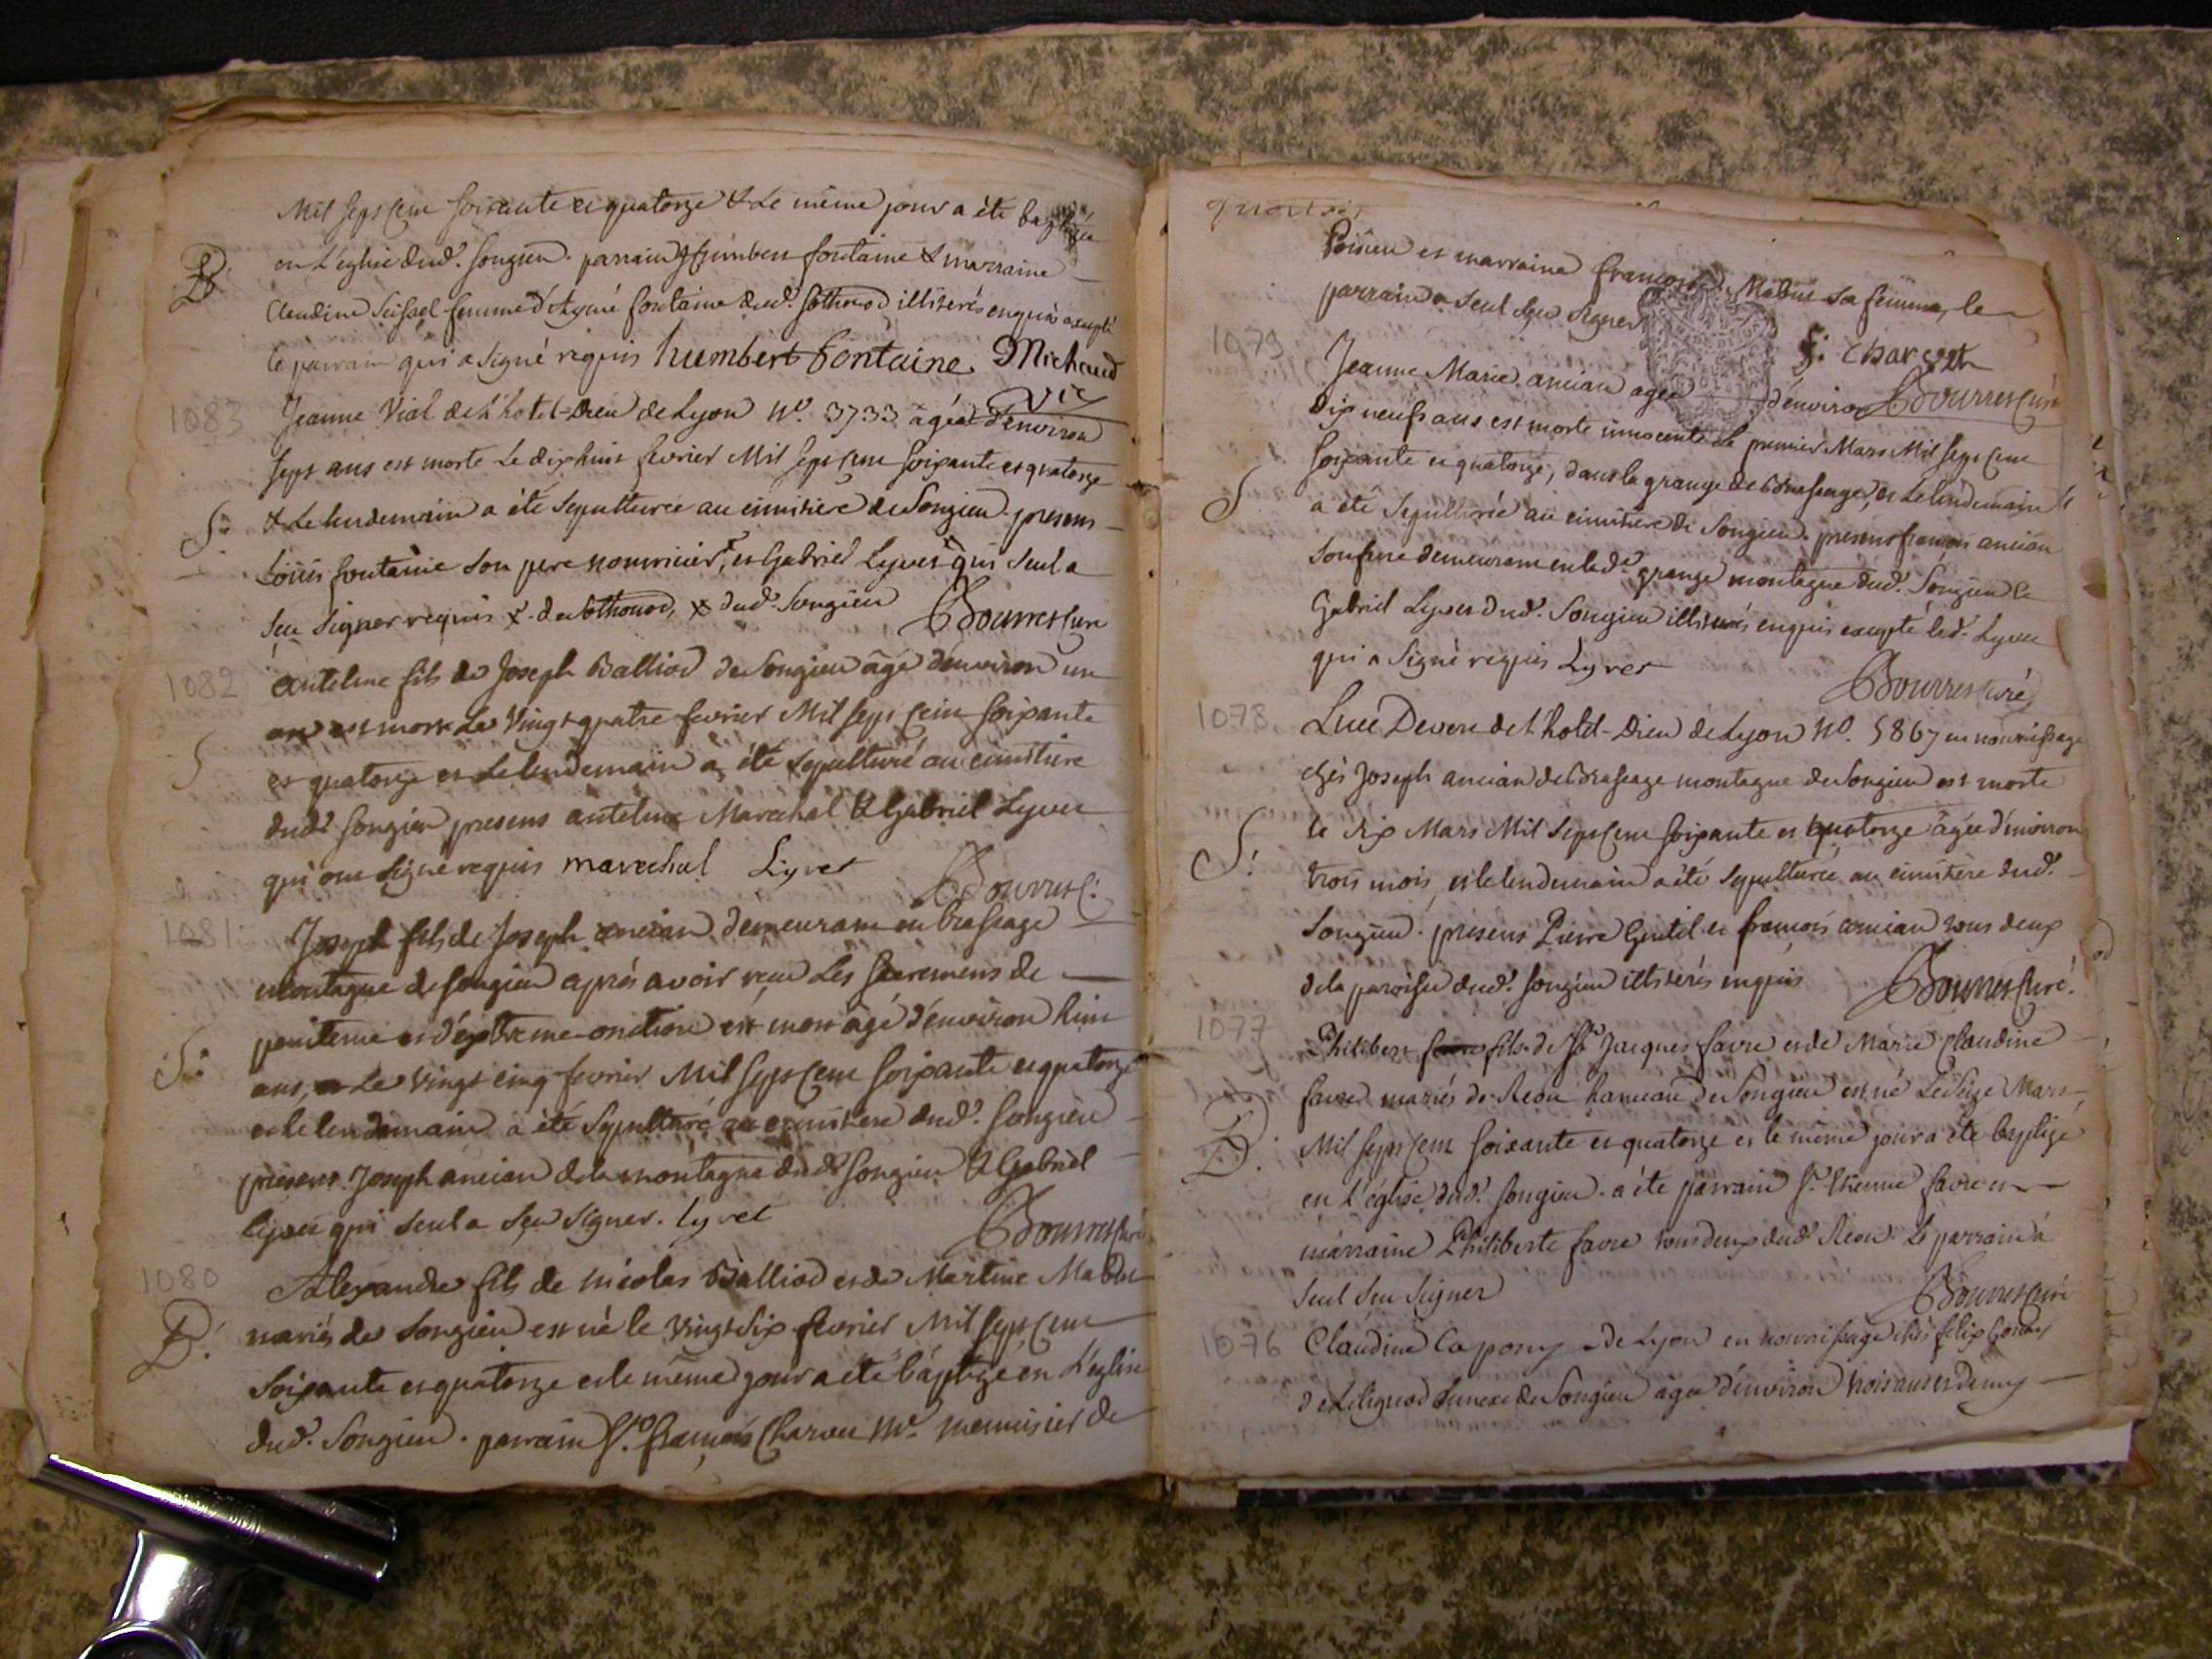 Mil sept cent soixante et quatorze & le même jour a été baptisée
en l'eglise dud. songieu. parrain humbert fontaine & marraine
B
Claudine Seissel femme d'Aymé fontaine dud. sothonod illiterés enquis excepté
le parrain qui a signé requis humbert fontaine. Michaud
vic
1083
Jeanne Vial de l'hotel-Dieu de Lyon No. 3733 agée d'environ
sept ans est morte le dix huit fevrier Mil sept cent soixante et quatorze
S:
& le lendemain a été sepulturée au cimitiere de Songieu. presens
Loüis fontaine son pere nourricier, et Gabriel Lyvet qui seul a
sçu signer requis x. de Sothonod, x dud. Songieu Bourret Curé
1082
antelme fils de Joseph Balliod de Songieu âgé d'environ un
an est mort le vingt quatre fevrier Mil sept cent soixante
S
et quatorze et le lendemain a été sepulturé au cimitiere
dud. songieu presens antelme Marechal & Gabriel Lyvet
qui ont signé requis marechal Lyvet Bourret C:
1081
Joseph fils de Joseph ancian demeurant en brassage
montagne de songieu après avoir reçu les sacremens de
penitence et d'extreme-onction est mort âgé d'environ huit
S:
ans, le vingt cinq fevrier Mil sept cent soixante et quatorze
et le lendemain a été sepulturé au cimitiere dud. songieu
presens Joseph ancian de la montagne dud. songieu & Gabriel
Lyvet qui seul a sçu signer. lyvet Bourret curé
1080
Alexandre fils de nicolas Balliod et de Martine Mabut
B.
mariés de Songieu est né le vingt six fevrier Mil sept cent
soixante et quatorze et le même jour a été baptizé en l'eglise
dud. Songieu. parrain Sr. françois Charvet Me. menuisier de
Poisieu et marraine françoise Mabut sa femme, le
parrain a seul sçu signer
f: Charvet
1079
Jeanne Marie ancian agée d'environ Bourret Curé
dix neufs ans est morte innocente le premier Mars Mil sept cent
soixante et quatorze, dans la grange de brassage, et le lendemain
S
a été sepulturée au cimitiere de Songieu. presens françois ancian
son frere demeurant en lad. grange montagne dud. Songieu et
Gabriel Lyvet dud. Songieu illiterés enquis excepté led. Lyvet
qui a signé requis Lyvet
Bourret curé
1078
Luce Devere de l'hotel-Dieu de Lyon No. 5867 en nourrissage
chés Joseph ancian de brassage montagne de Songieu est morte
le dix Mars Mil sept cent soixante et quatorze âgée d'environ
S:
trois mois, et le lendemain a été sepulturée au cimitiere dud.
Songieu. presens Pierre Gentil et françois ancian tous deux
de la paroisse dud. songieu illiterés enquis Bourret Curé.
1077
Philibert fils de Sr. Jacques favre et de Marie claudine
favre mariés de Reou hameau de Songieu est né le seize Mars
B.
Mil sept cent soixante et quatorze et le même jour a été baptizé
en l'église dud. songieu. a été parrain Sr. Etienne favre et
marraine Philiberte favre tous deux dud. Reou. le parrain a
seul sçu signer Bourret curé
1076
Claudine Capony de Lyon en nourrissage chés felix
de Lilignod annexe de Songieu âgée d'environ trois ans et demy